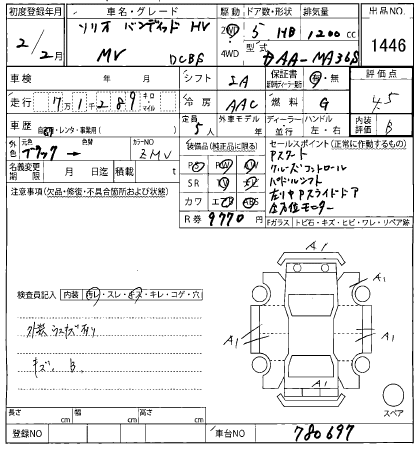 初度登録年月 車名・グレード 駆動 ドア数・形状 排気量 出品NO.
ソリオ バンディット HV 2WD 5 HB 1200 cc
2/2月 MV DCBF 4WD 型式 DAA-MA36S 1446
車検 年 月 シフト IA 保証書 有・無 評価点
走行 7万1千289 キロ マイル 冷房 AAC 燃料 G 4.5
車歴 自家・レンタ・事業用( ) 定員 5人 外車モデル 年 ディーラー・並行 ハンドル 左・右 内装評価 B
外色 元色 ブラック 色替 カラーNO ZMV 装備品(純正品に限る) セールスポイント(正常に作動するもの)
名義変更期限 月 日迄 積載 t PS PW AW
注意事項(欠品・修復・不具合箇所および状態) SR TV ナビ
クルーズコントロール
パドルシフト
左リヤPスライドドア
カワ エアB ABS 全方位モニター
R券 9770円 Fガラス トビ石・キズ・ヒビ・ワレ・リペア跡
A1
A1
検査員記入 内装 汚レ・スレ・キズ・キレ・コゲ・穴
A1 A1
外装
キズ、B
A1
スペア
長さ cm 幅 cm 高さ cm
登録NO 車台NO 780697